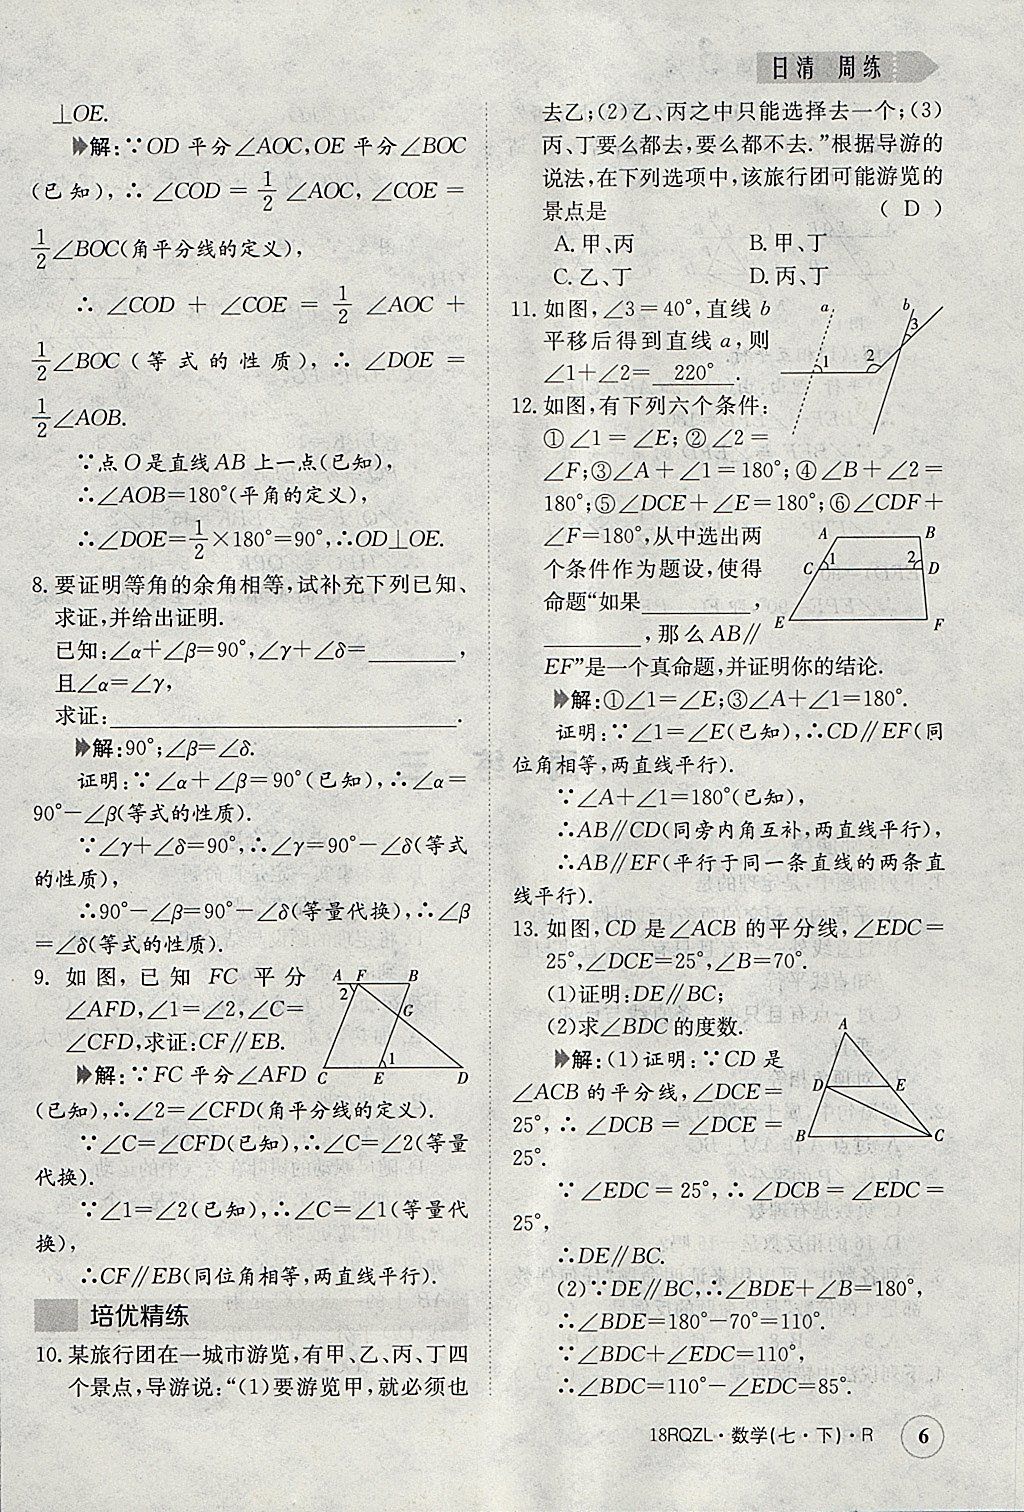 日清 周练
⊥OE.
解:∵OD 平分∠AOC,OE 平分∠BOC
(已知),∴∠COD = 1/2 ∠AOC,∠COE =
1/2∠BOC(角平分线的定义),
∴ ∠COD + ∠COE = 1/2 ∠AOC +
1/2∠BOC(等式的性质),∴∠DOE =
1/2∠AOB.
∵点 O 是直线 AB 上一点(已知),
∴∠AOB=180°(平角的定义),
∴∠DOE=1/2×180°=90°,∴OD⊥OE.
8. 要证明等角的余角相等,试补充下列已知、
求证,并给出证明.
已知:∠α+∠β=90°,∠γ+∠δ=________,
且∠α=∠γ,
求证:________________________.
解:90°;∠β=∠δ.
证明:∵∠α+∠β=90°(已知),∴∠α=
90°-∠β(等式的性质).
∵∠γ+∠δ=90°,∴∠γ=90°-∠δ(等式
的性质),
∴90°-∠β=90°-∠δ(等量代换),∴∠β
=∠δ(等式的性质).
9. 如图,已知 FC 平分
∠AFD,∠1=∠2,∠C=
∠CFD,求证:CF∥EB.
A F B
2
G
1
C E D
解:∵FC 平分∠AFD
(已知),∴∠2=∠CFD(角平分线的定义).
∵∠C=∠CFD(已知),∴∠C=∠2(等量
代换).
∵∠1=∠2(已知),∴∠C=∠1(等量代
换),
∴CF∥EB(同位角相等,两直线平行).
培优精练
10. 某旅行团在一城市游览,有甲、乙、丙、丁四
个景点,导游说:“(1)要游览甲,就必须也
去乙;(2)乙、丙之中只能选择去一个;(3)
丙、丁要么都去,要么都不去.”根据导游的
说法,在下列选项中,该旅行团可能游览的
景点是 ( D )
A. 甲、丙 B. 甲、丁
C. 乙、丁 D. 丙、丁
11. 如图,∠3=40°,直线 b
平移后得到直线 a,则
∠1+∠2= 220° .
a b
3
1 2
12. 如图,有下列六个条件:
①∠1=∠E;②∠2=
∠F;③∠A+∠1=180°;④∠B+∠2=
180°;⑤∠DCE+∠E=180°;⑥∠CDF+
∠F=180°,从中选出两
个条件作为题设,使得
命题“如果________,
________,那么 AB∥
EF”是一个真命题,并证明你的结论.
A B
C 1 2 D
E F
解:①∠1=∠E;③∠A+∠1=180°.
证明:∵∠1=∠E(已知),∴CD∥EF(同
位角相等,两直线平行).
∵∠A+∠1=180°(已知),
∴AB∥CD(同旁内角互补,两直线平行),
∴AB∥EF(平行于同一条直线的两条直
线平行).
13. 如图,CD 是∠ACB 的平分线,∠EDC=
25°,∠DCE=25°,∠B=70°.
(1)证明:DE∥BC;
(2)求∠BDC 的度数.
A
D E
B C
解:(1)证明:∵CD 是
∠ACB 的平分线,∠DCE=
25°,∴∠DCB=∠DCE=
25°.
∵∠EDC=25°,∴∠DCB=∠EDC=
25°,
∴DE∥BC.
(2)∵DE∥BC,∴∠BDE+∠B=180°,
∴∠BDE=180°-70°=110°.
∵∠BDC+∠EDC=110°,
∴∠BDC=110°-∠EDC=85°.
18RQZL·数学(七·下)·R 6